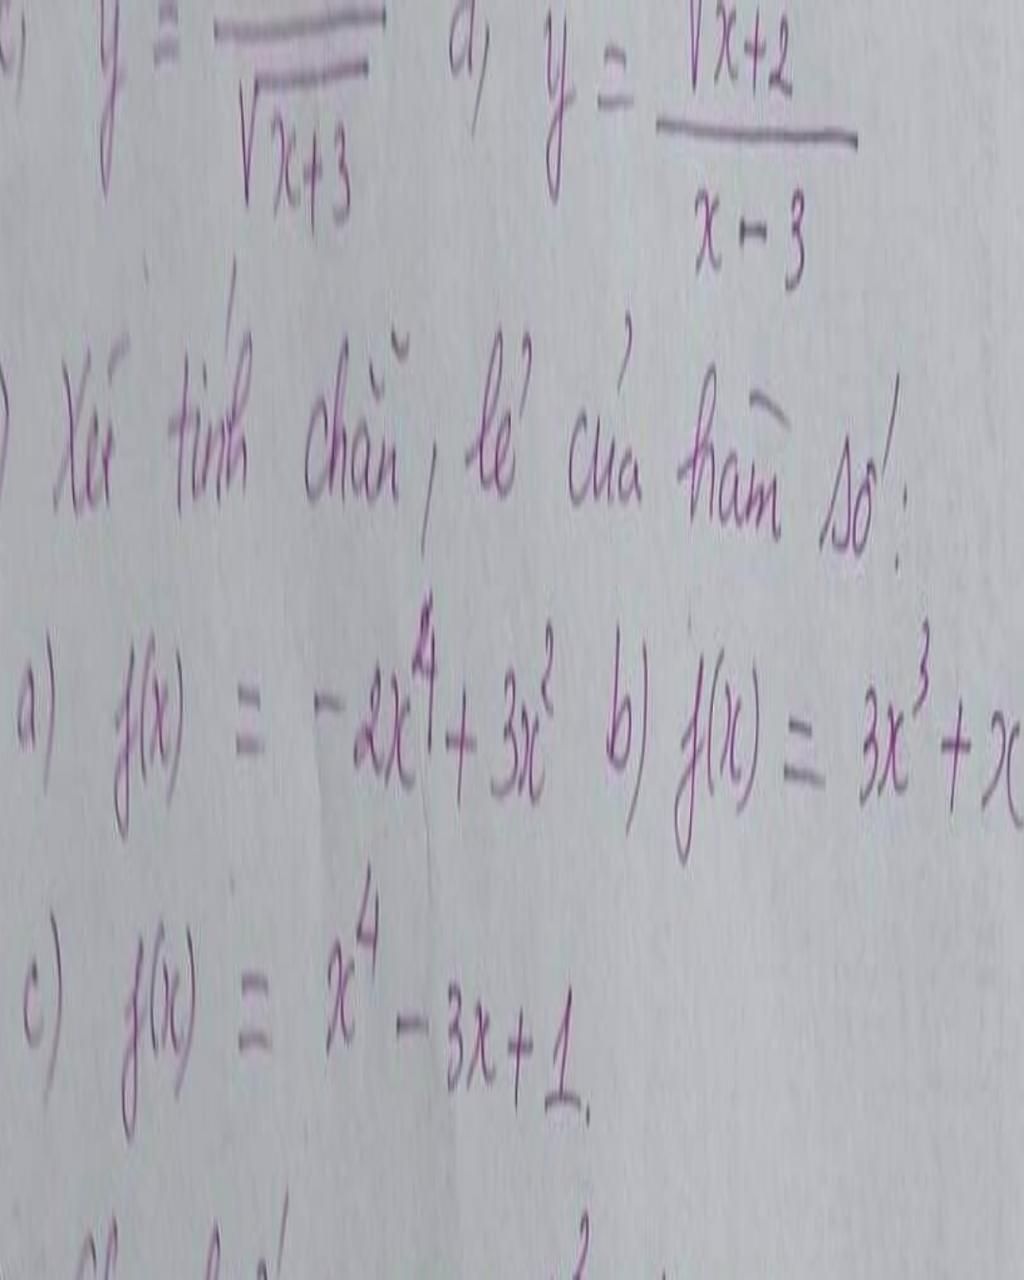 y = / √x+3 d, y = √x+2 / x - 3
Xét tính chẵn, lẻ của hàm số:
a) f(x) = -2x⁴ + 3x² b) f(x) = 3x³ + x
c) f(x) = x⁴ - 3x + 1.